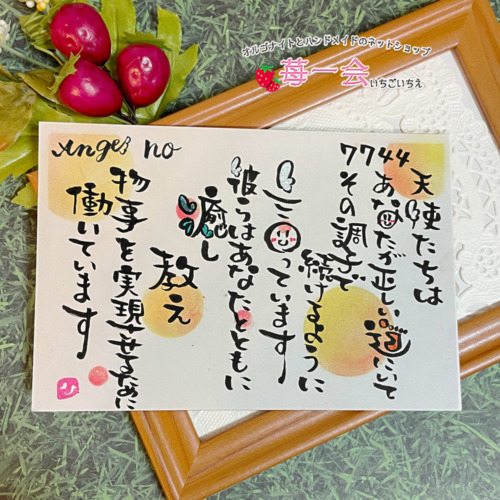 オルゴナイトとハンドメイドのネットショップ
苺一会いちごいちえ
Angel no 7744
天使たちは
あなたが正しい道にいて
その調子で
続けるように
言っています
彼らはあなたとともに
癒し
教え
物事を実現させるために
働いています